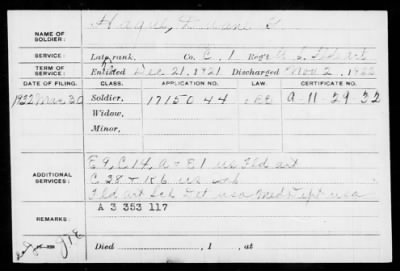 NAME OF SOLDIER:
SERVICE: Late rank, Co. C, 1 Reg't U.S. Fld art
TERM OF SERVICE: Enlisted Dec 21, 1921 Discharged Nov 2, 1922
DATE OF FILING. CLASS. APPLICATION NO. LAW. CERTIFICATE NO.
1932 Mar 30 Soldier, 1715044 A-11-29-32
Widow,
Minor,
ADDITIONAL SERVICES: E 9, C 14, A & E 1 us Fld art
C 28 & K 6 us
Fld art Sch Det usa Med Dept usa
REMARKS: A 3 353 117
Died , 1 , at